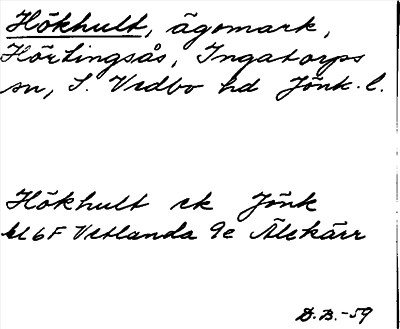 Hökhult, ägomark,
Hörtingsås, Ingatorps
sn, S. Vedbo hd Jönk. l.
Hökhult ek Jönk
bl 6F Vetlanda 9e Älekärr
D.B.-59